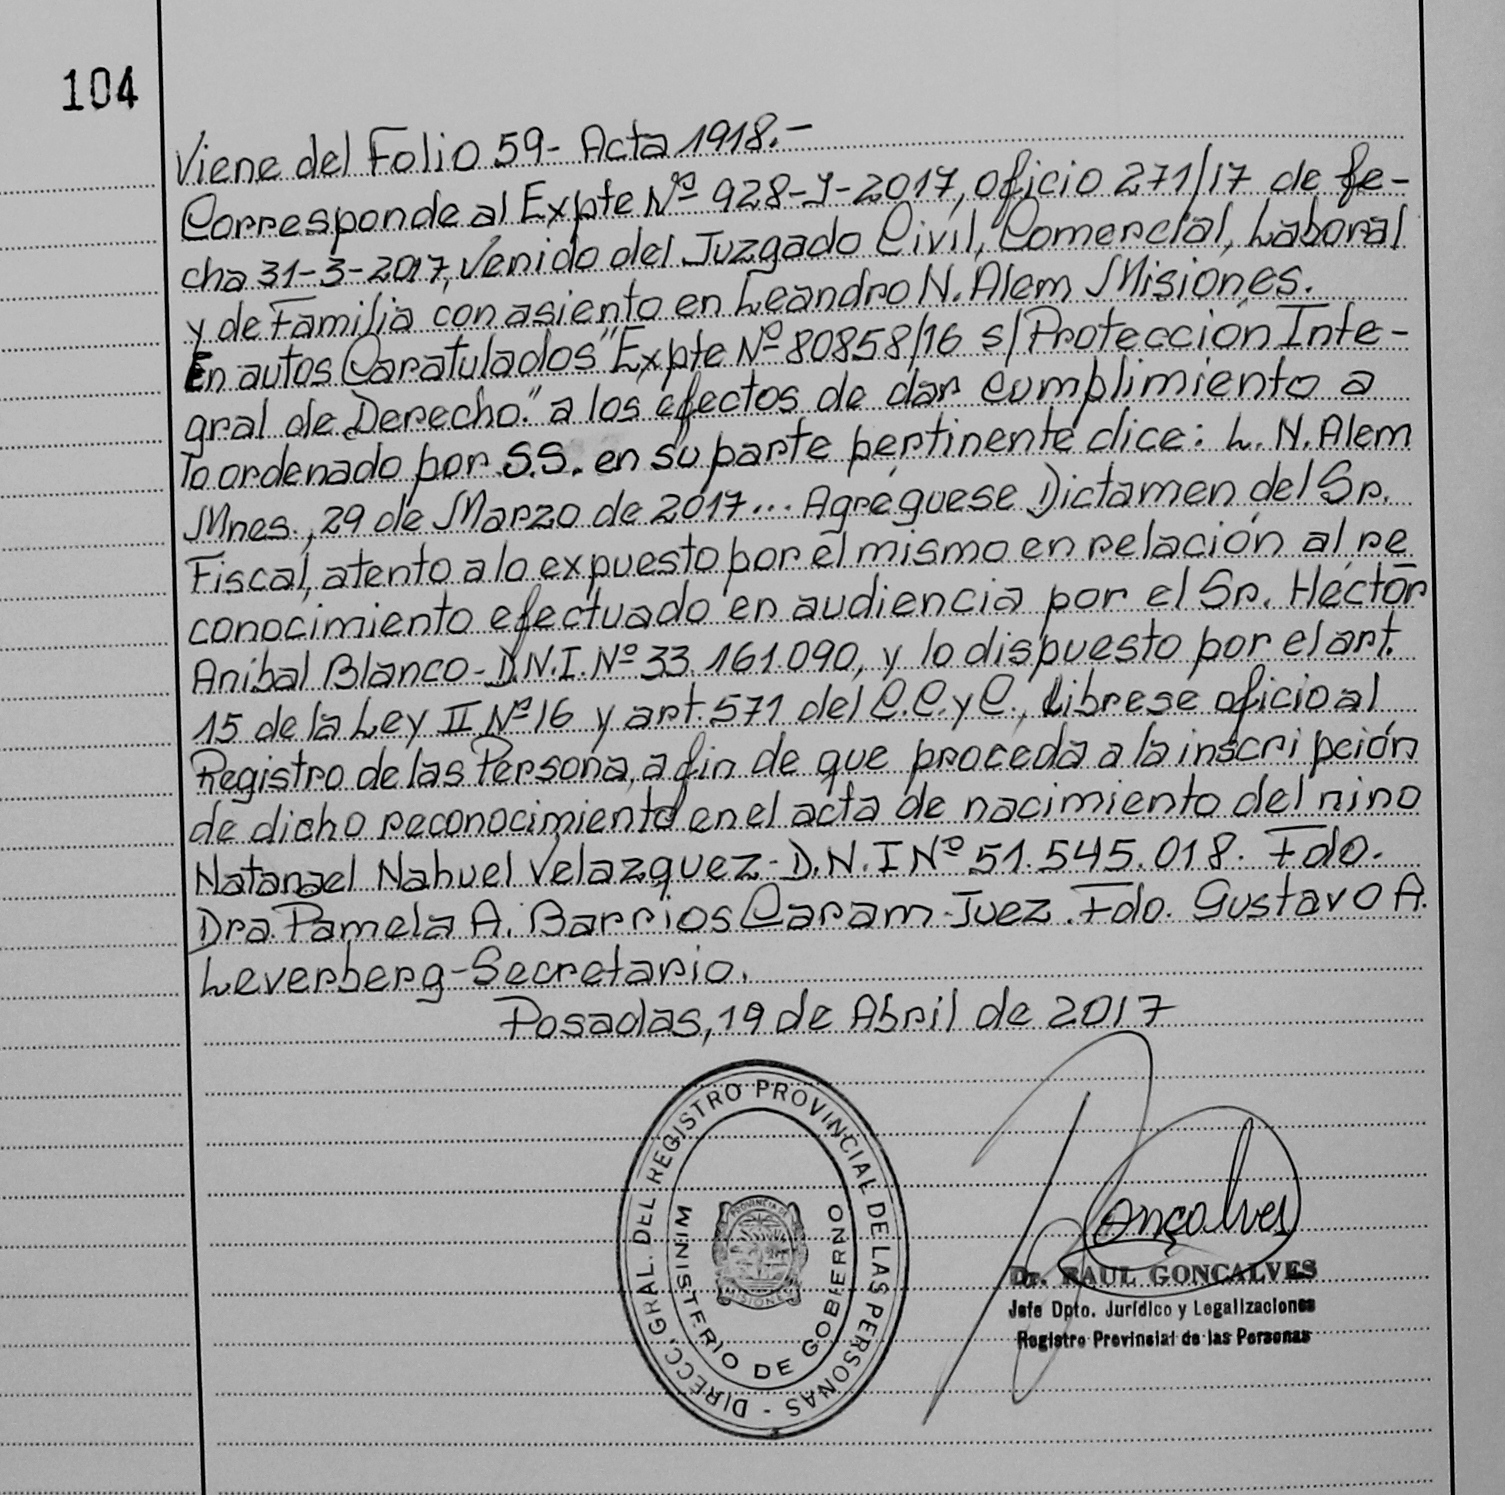 104
Viene del Folio 59- Acta 1918.-
Corresponde al Expte Nº 928-Y-2017, oficio 271/17 de fe-
cha 31-3-2017, Venido del Juzgado Civil, Comercial, Laboral
y de Familia con asiento en Leandro N. Alem Misiones.
En autos Caratulados "Expte Nº 80858/16 s/Protección Inte-
gral de Derecho." a los efectos de dar cumplimiento a
lo ordenado por S.S. en su parte pertinente dice: L. N. Alem
Mnes., 29 de Marzo de 2017... Agréguese Dictamen del Sr.
Fiscal, atento a lo expuesto por el mismo en relación al re
conocimiento efectuado en audiencia por el Sr. Héctor
Anibal Blanco- D.N.I. Nº 33.161.090, y lo dispuesto por el art.
15 de la Ley II Nº 16 y art. 571 del C.C. y C., Librese oficio al
Registro de las Persona, a fin de que proceda a la inscripción
de dicho reconocimiento en el acta de nacimiento del nino
Natanael Nahuel Velazquez- D.N.I Nº 51.545.018. Fdo.
Dra. Pamela A. Barrios Caram-Juez. Fdo. Gustavo A.
Leverberg-Secretario.
Posadas, 19 de Abril de 2017
DIRECC. GRAL. DEL REGISTRO PROVINCIAL DE LAS PERSONAS -
MINISTERIO DE GOBIERNO
PROVINCIA DE
MISIONES
Gonçalves
Dr. RAUL GONCALVES
Jefe Dpto. Jurídico y Legalizaciones
Registro Provincial de las Personas